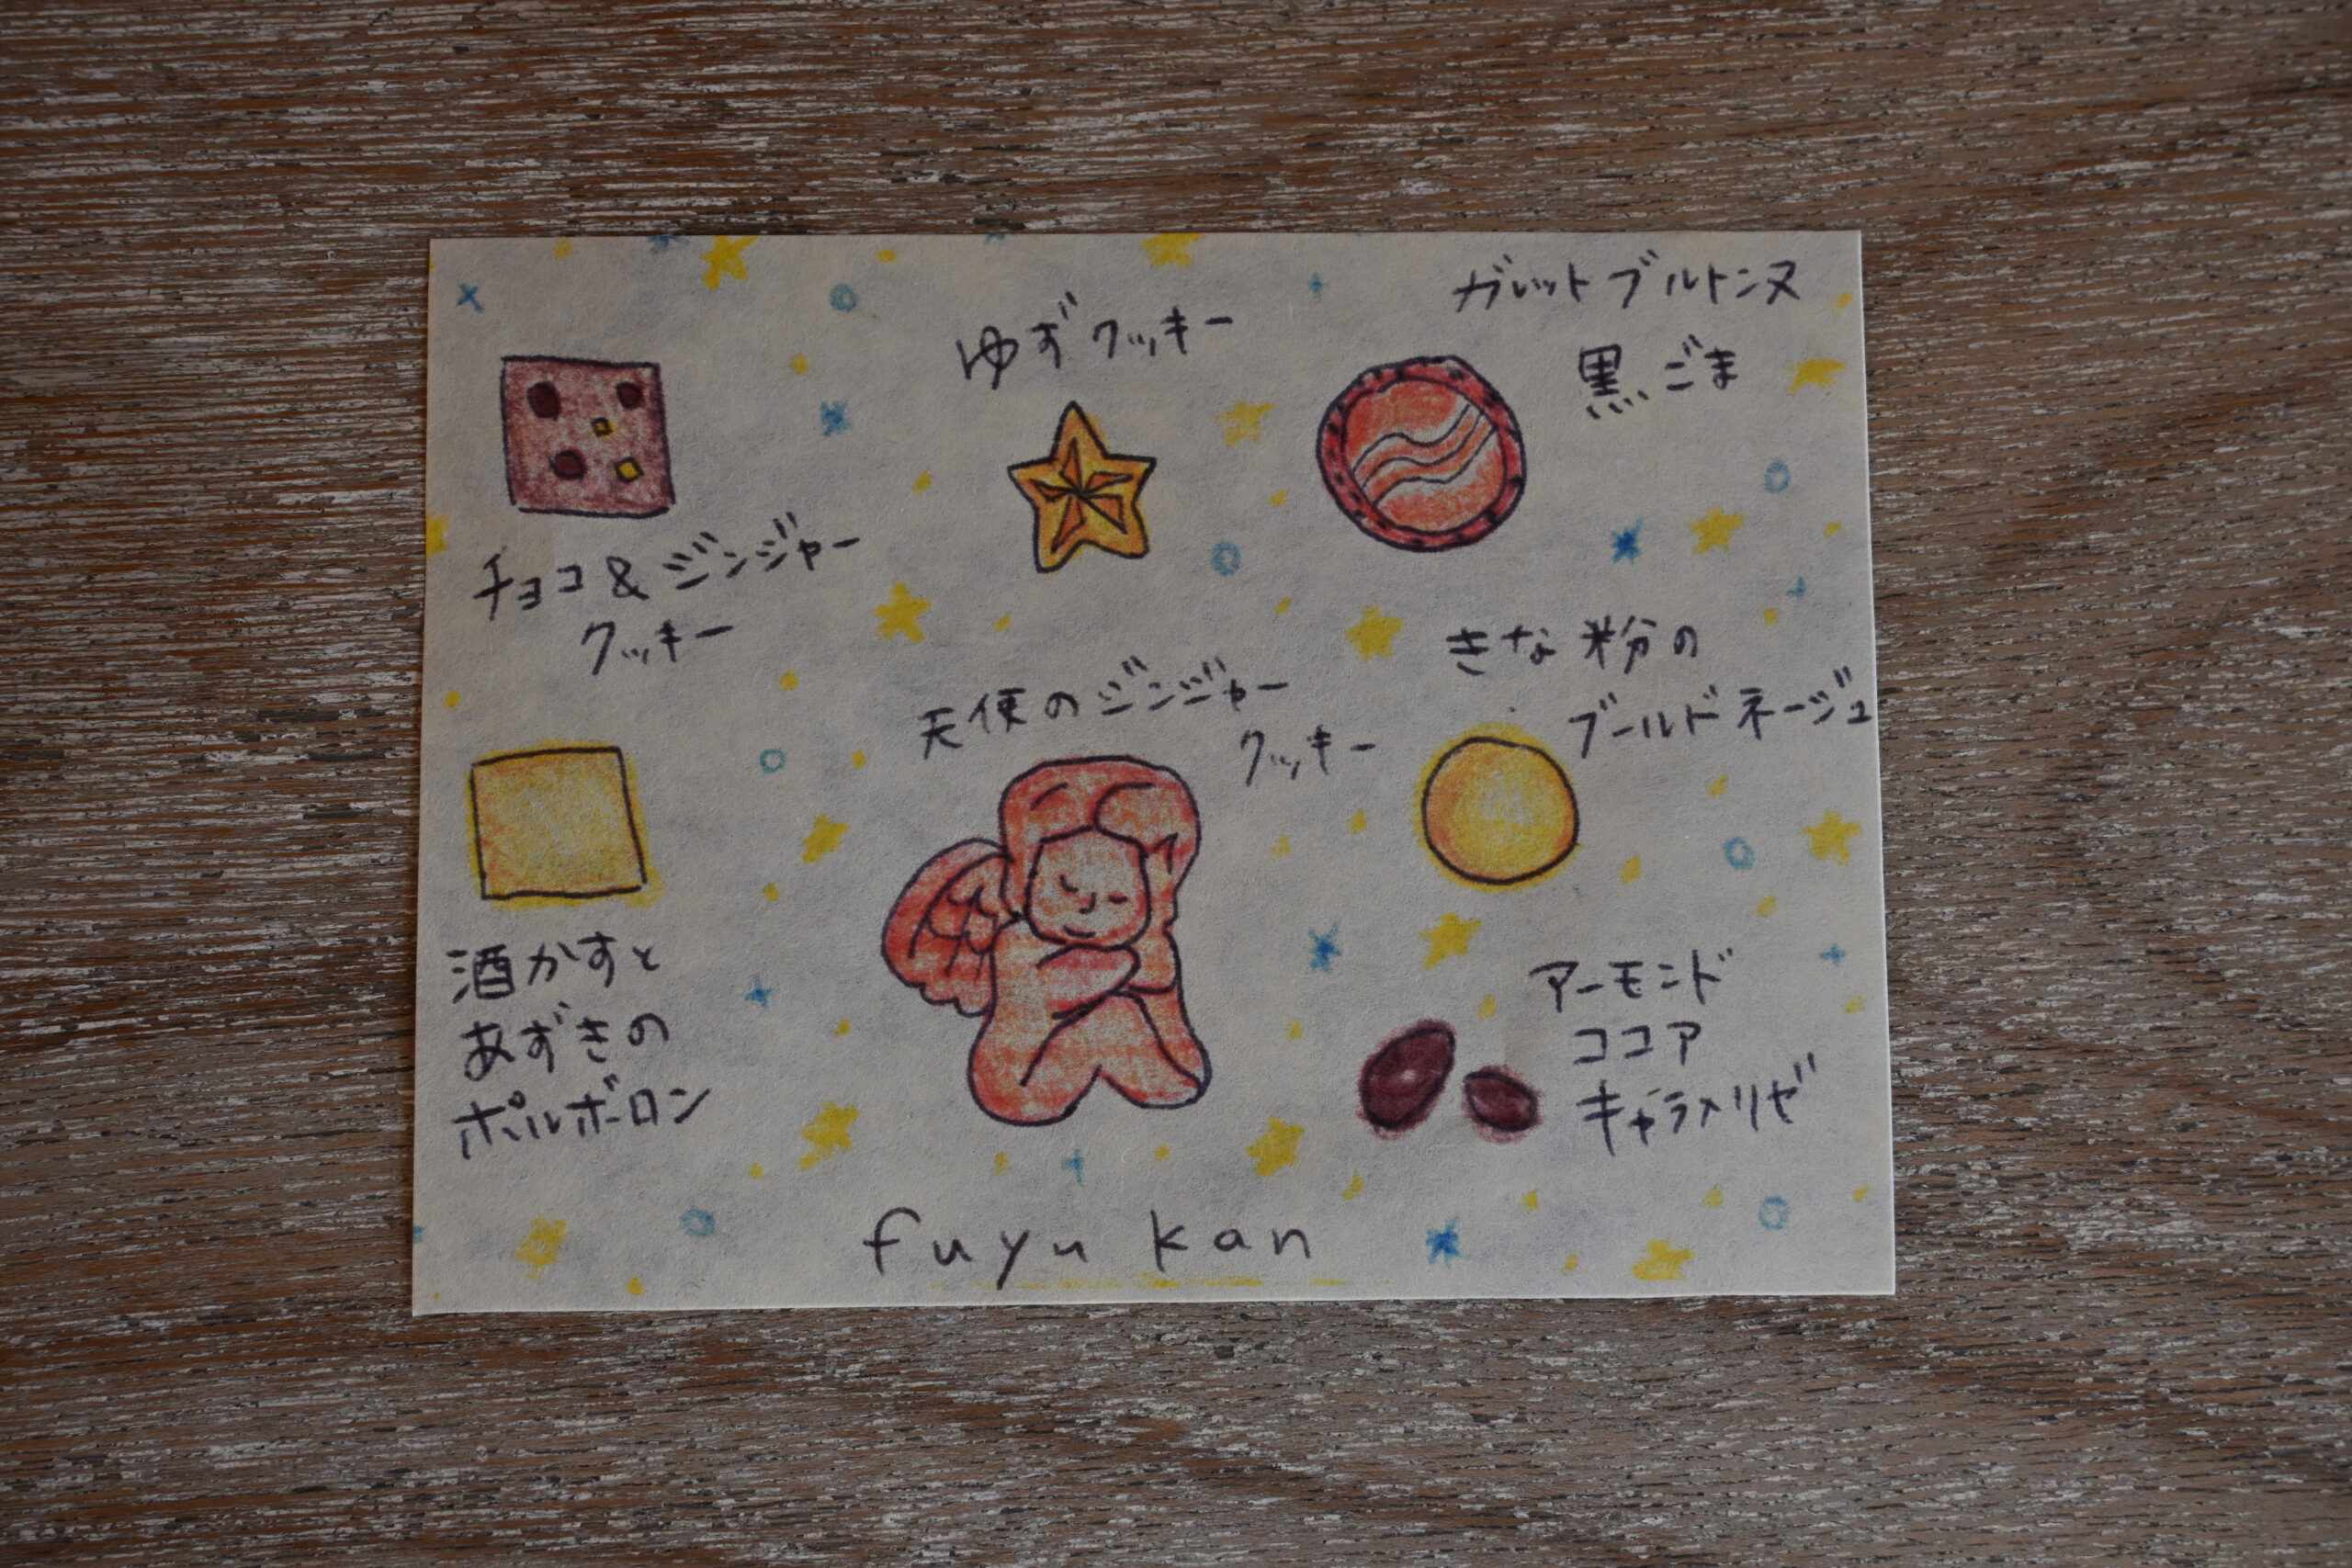 チョコ&ジンジャー
クッキー
ゆずクッキー
ガレットブルトンヌ
黒ごま
酒かすと
あずきの
ポルボーロン
天使のジンジャー
クッキー
きな粉の
ブールドネージュ
アーモンド
ココア
キャラメリゼ
fuyu kan